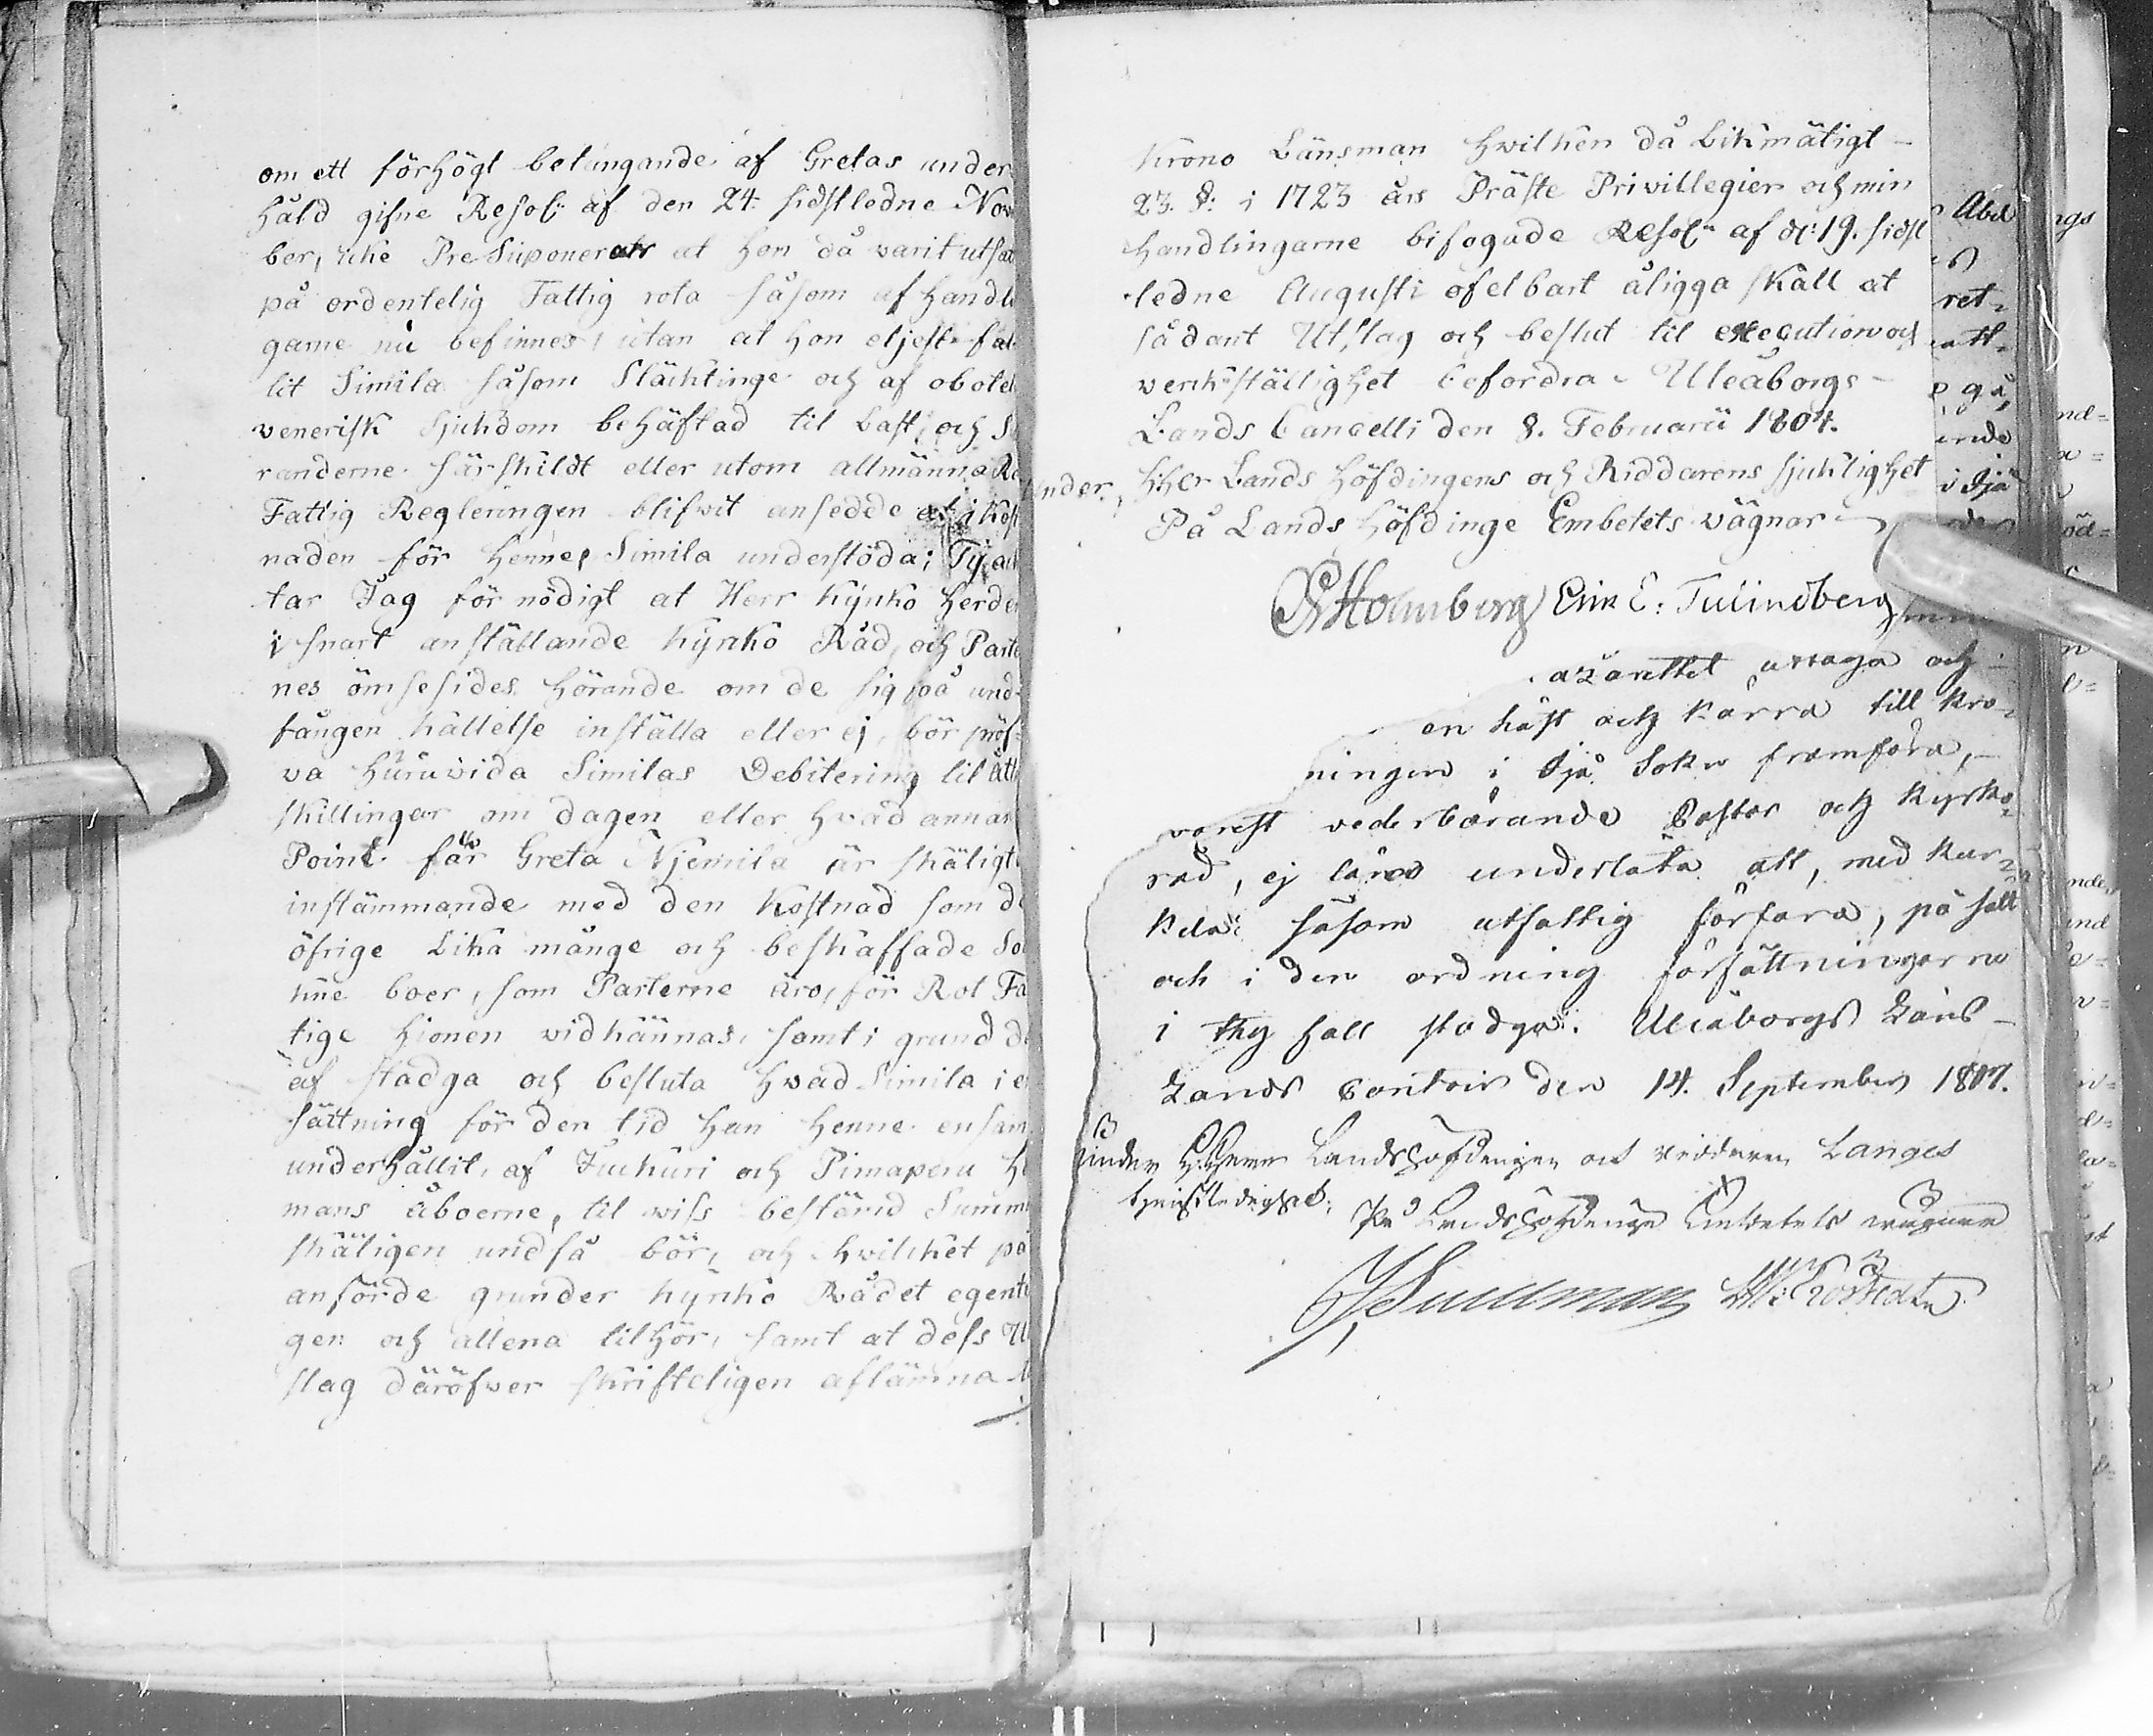 om ett förhögt betingande af Gretas under
håld gifne Resol: af den 24. sidstledne Nov
ber, icke Presuponerats at hon då varit utsat
på ordentelig Fattig rota såsom af handl
garne nu befinnes, utan at hon eljest fal
lit Simila såsom Slächtinge och af obotel
venerisk Sjukdom behäftad til Last, och S
randerne särskildt eller utom allmänna Ro
Fattig Regleringen blifvit ansedde at i kost
naden för Henne, Simila understöda; Ty ak
tar Jag för nödigt at Herr Kyrko Herden
i snart anställande Kyrko Råd, och Parte
nes ömsesides hörande om de sig på und
fången kallelse inställa eller ej, bör pröf
va huruvida Similas Debitering til ått
skillingar om dagen eller hvad annan
Point för Greta Njemila är skäligt
instämmande med den Kostnad som de
öfrige Lika månge och beskaffade So
kne boer, som Parterne äro, för Rot Fat
tige Hionen vidkännas, samt i grund de
af stadga och besluta hvad Simila i er
sättning för den tid han henne ensam
underhållit, af Juckuri och Pimäperä He
mans åboerne, til viss bestämd Summa
skäligen undfå bör, och hvilcket på
anförde grunder Kyrko Rådet egente
gen och allena tilhör, samt at dess Ut
slag däröfver skrifteligen aflämna til
Krono Länsman hvilken då Likmätigt
23. §: i 1723 års Präste Privillegier och min
handlingarne bifogade Resol:n af d: 19. sidst
ledne Augusti ofelbart åligga skall at
sådant Utslag och beslut til execution och
verkställighet befordra. Uleåborgs
Lands Cancelli den 8. Februarii 1804.
Under HHer Lands Höfdingens och Riddarens sjuklighet
På Lands Höfdinge Embetets vägnar
Holmberg Erik E: Tulindberg
azarettet antaga och
en häst och Kärra till Kro
ningen i Ijo Sokn framföra,
varest vederbörande Pastor och Kyrko
råd, ej lära underlåta att, med Kur
kela såsom utfattig förfara, på sätt
och i den ordning författningarne
i thy fall stadga. Uleåborgs Läns
Lands Contoir den 14. September 1807.
Under H:Herr Landshöfdingen och Riddaren Langes
tjenstledighet.
På Landshöfdinge Embetets vägnar